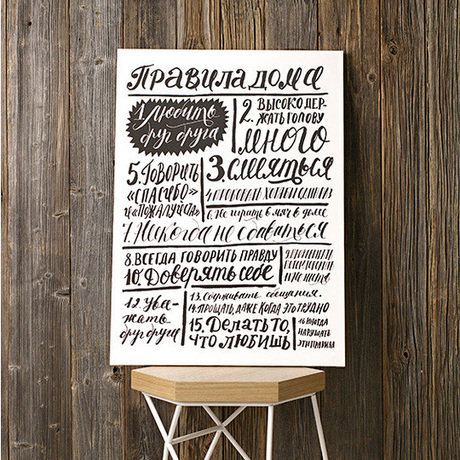 Правила дома
1. Любить
друг друга
2. ВЫСОКО ДЕР-
ЖАТЬ ГОЛОВУ
3. много
смеяться
5. ГОВОРИТЬ
«СПАСИБО»
И «ПОЖАЛУЙСТА»
6. Не играть в мяч в доме
7. Никогда не сдаваться
8. ВСЕГДА ГОВОРИТЬ ПРАВДУ
10. Доверять себе
12. Ува-
жать
друг друга
13. Сдерживать обещания.
14. ПРОЩАТЬ, ДАЖЕ КОГДА ЭТО ТРУДНО
15. Делать то,
что любишь
16. ИНОГДА
НАРУШАТЬ
ЭТИ ПРАВИЛА